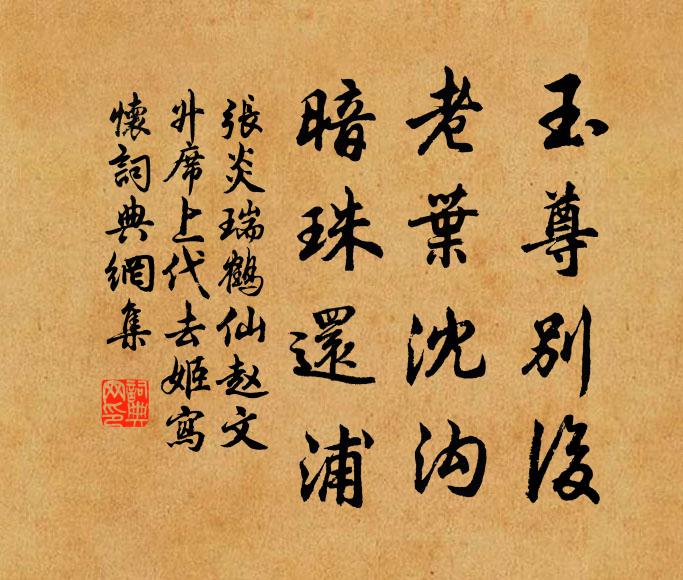 玉尊別後
老葉沈沟
暗珠還浦
張炎瑞鶴仙赵文
升席上代去姬寫
懷詞典網集
詞典网印